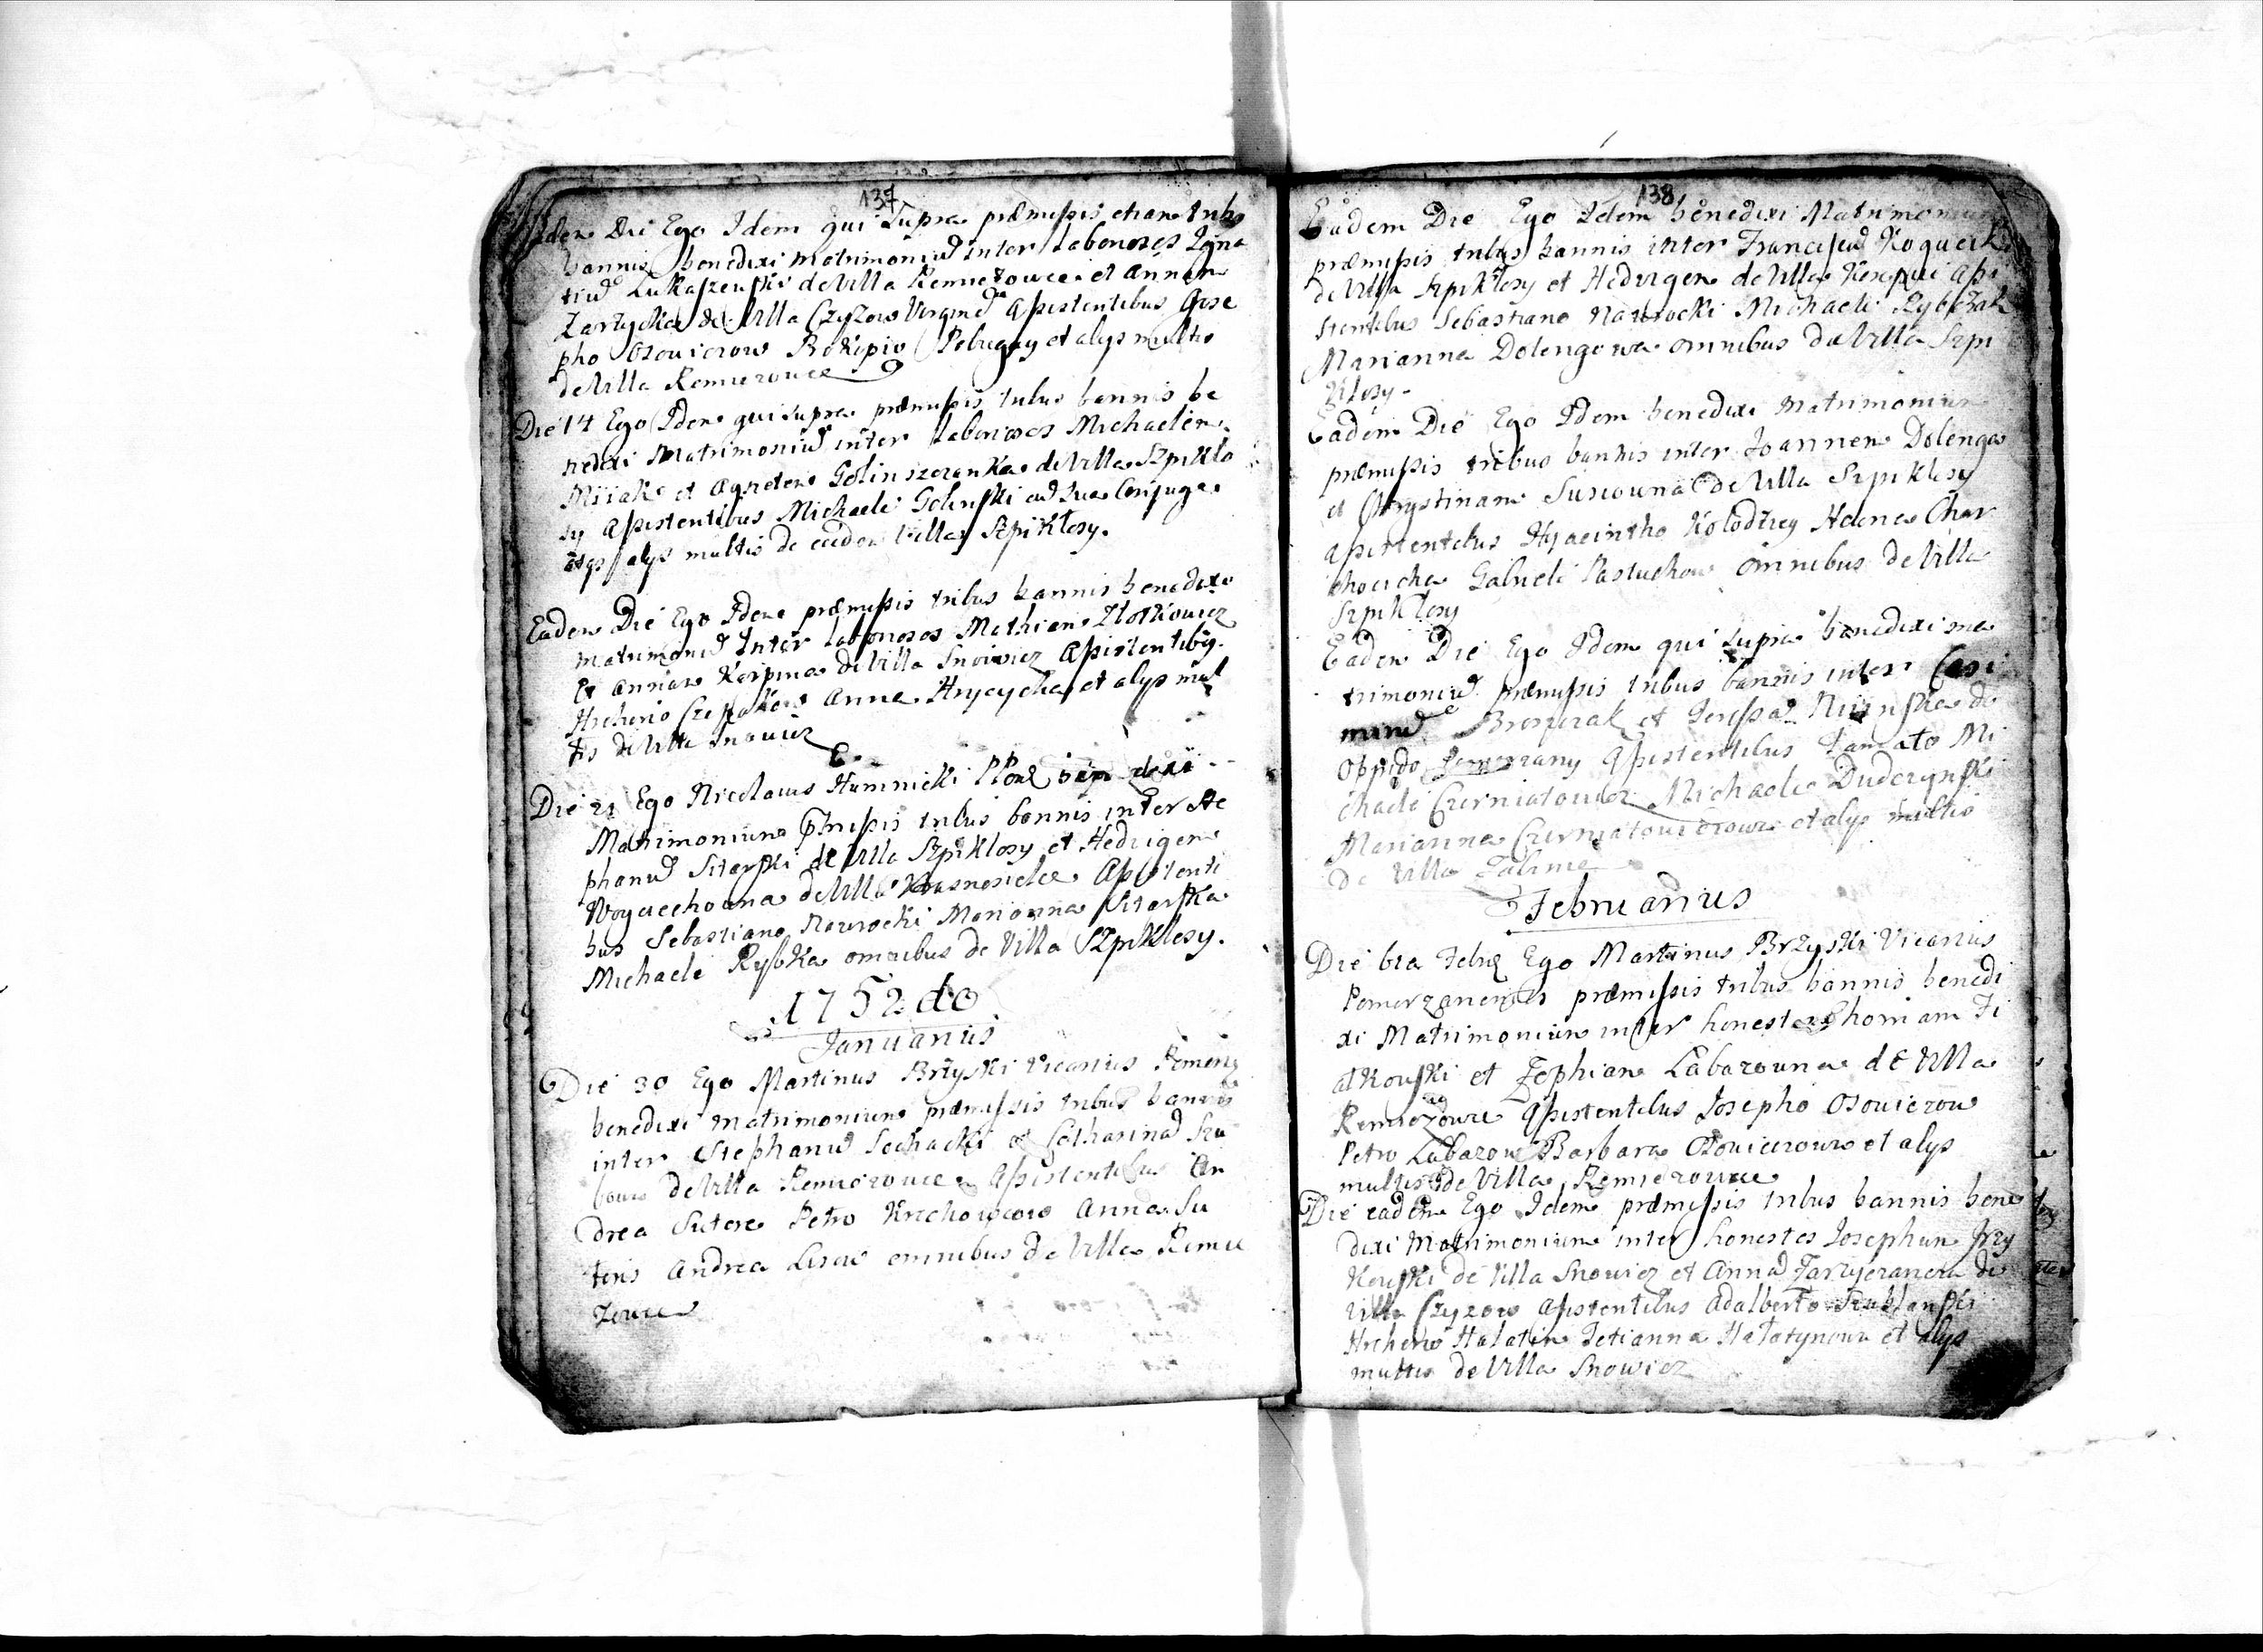 137
Eadem Die Ego Idem qui Supra præmissis etiam tribg
bannis benedixi matrimoniu inter laboriosos Igna
tiu Lukaszewski de Villa Remizowce et Annam
Zarzycka de Villa Czyzow Virgine Assistentibus Jose
pho Osowiczow Prokopio et alys multis
de Villa Remizowce
Die 14 Ego Idem qui supra præmissis tribus bannis be
nedixi Matrimoniu inter laboriosos Michaelem
et Agnetem Golinszczanka de Villa Szpiklo
sy Assistentibus Michaele Golinski cu sua Conjuge
alys multis de eadem Villa Szpiklosy.
Eadem Die Ego Idem præmissis tribus bannis benedixi
matrimoniu Inter laboriosos Mathiam Zlotkowicz
Et Annam Karpina de Villa Snowicz Assistentibg.
Hrehorio Anna Hrycycha et alys mul
tis de Villa Snowicz
Die 21 Ego Nicolaus Humnicki benedixi
Matrimonium pmissis tribus bannis inter Ste
phanu Sitarski de Villa Szpiklosy et Hedvigem
Woyciechowna de Villa Krasnosielce Assistenti
bus Sebastiano Nawrocki Marianna Sitarska
Michaele Rybka omnibus de Villa Szpiklosy.
1752do
Januarius
Die 30 Ego Martinus Brzyski Vicarius Pomorz
benedixi matrimonium præmissis tribus bannis
inter Stephanu Sochacki et Catharina
de Villa Remizowce Assistentibus An
drea Sutore Petro Anna Su
toris Andrea Lisow omnibus de Villa Remi
zowce
138
Eadem Die Ego Idem benedixi Matrimonium
præmissis tribus bannis inter Franciscu
de Villa Szpiklosy et Hedvigem de Villa Assi
stentibus Sebastiano Nawrocki Michaele Rybczak
Marianna Dolengowa omnibus de Villa Szpi
klosy.
Eadem Die Ego Idem benedixi Matrimonium
præmissis tribus bannis inter Joannem Dolenga
et Chrystinam Susiowna de Villa Szpiklosy
Assistentibus Hyacintho Kolodziey Helena Char
Gabriele Pastuchow omnibus de Villa
Szpiklosy
Eadem Die Ego Idem qui Supra benedixi ma
trimoniu præmissis tribus bannis inter Casi
miru et de
Oppido Pomorzany Assistentibus Mi
chaele Czerniatowicz Michaele Duderynski
Marianna Czerniatowiczowa et alys multis
de Villa
Februarius
Die 6ta Febr Ego Martinus Brzyski Vicarius
Pomorzanensis præmissis tribus bannis benedi
xi Matrimonium inter honestos Thomam Fi
alkowski et Zophiam Labazowna de Villa
Remizowce Assistentibus Josepho Osowiczow
Petro Labazow Barbara Osowiczowa et alys
multis de Villa Remizowce
Die eadem Ego Idem præmissis tribus bannis bene
dixi Matrimonium inter honestos Josephum
de Villa Snowicz et Anna de
Villa Czyzow Assistentibus Adalberto
Hrehorio Halatin Tetianna Halatynowa et alys
multis de Villa Snowicz